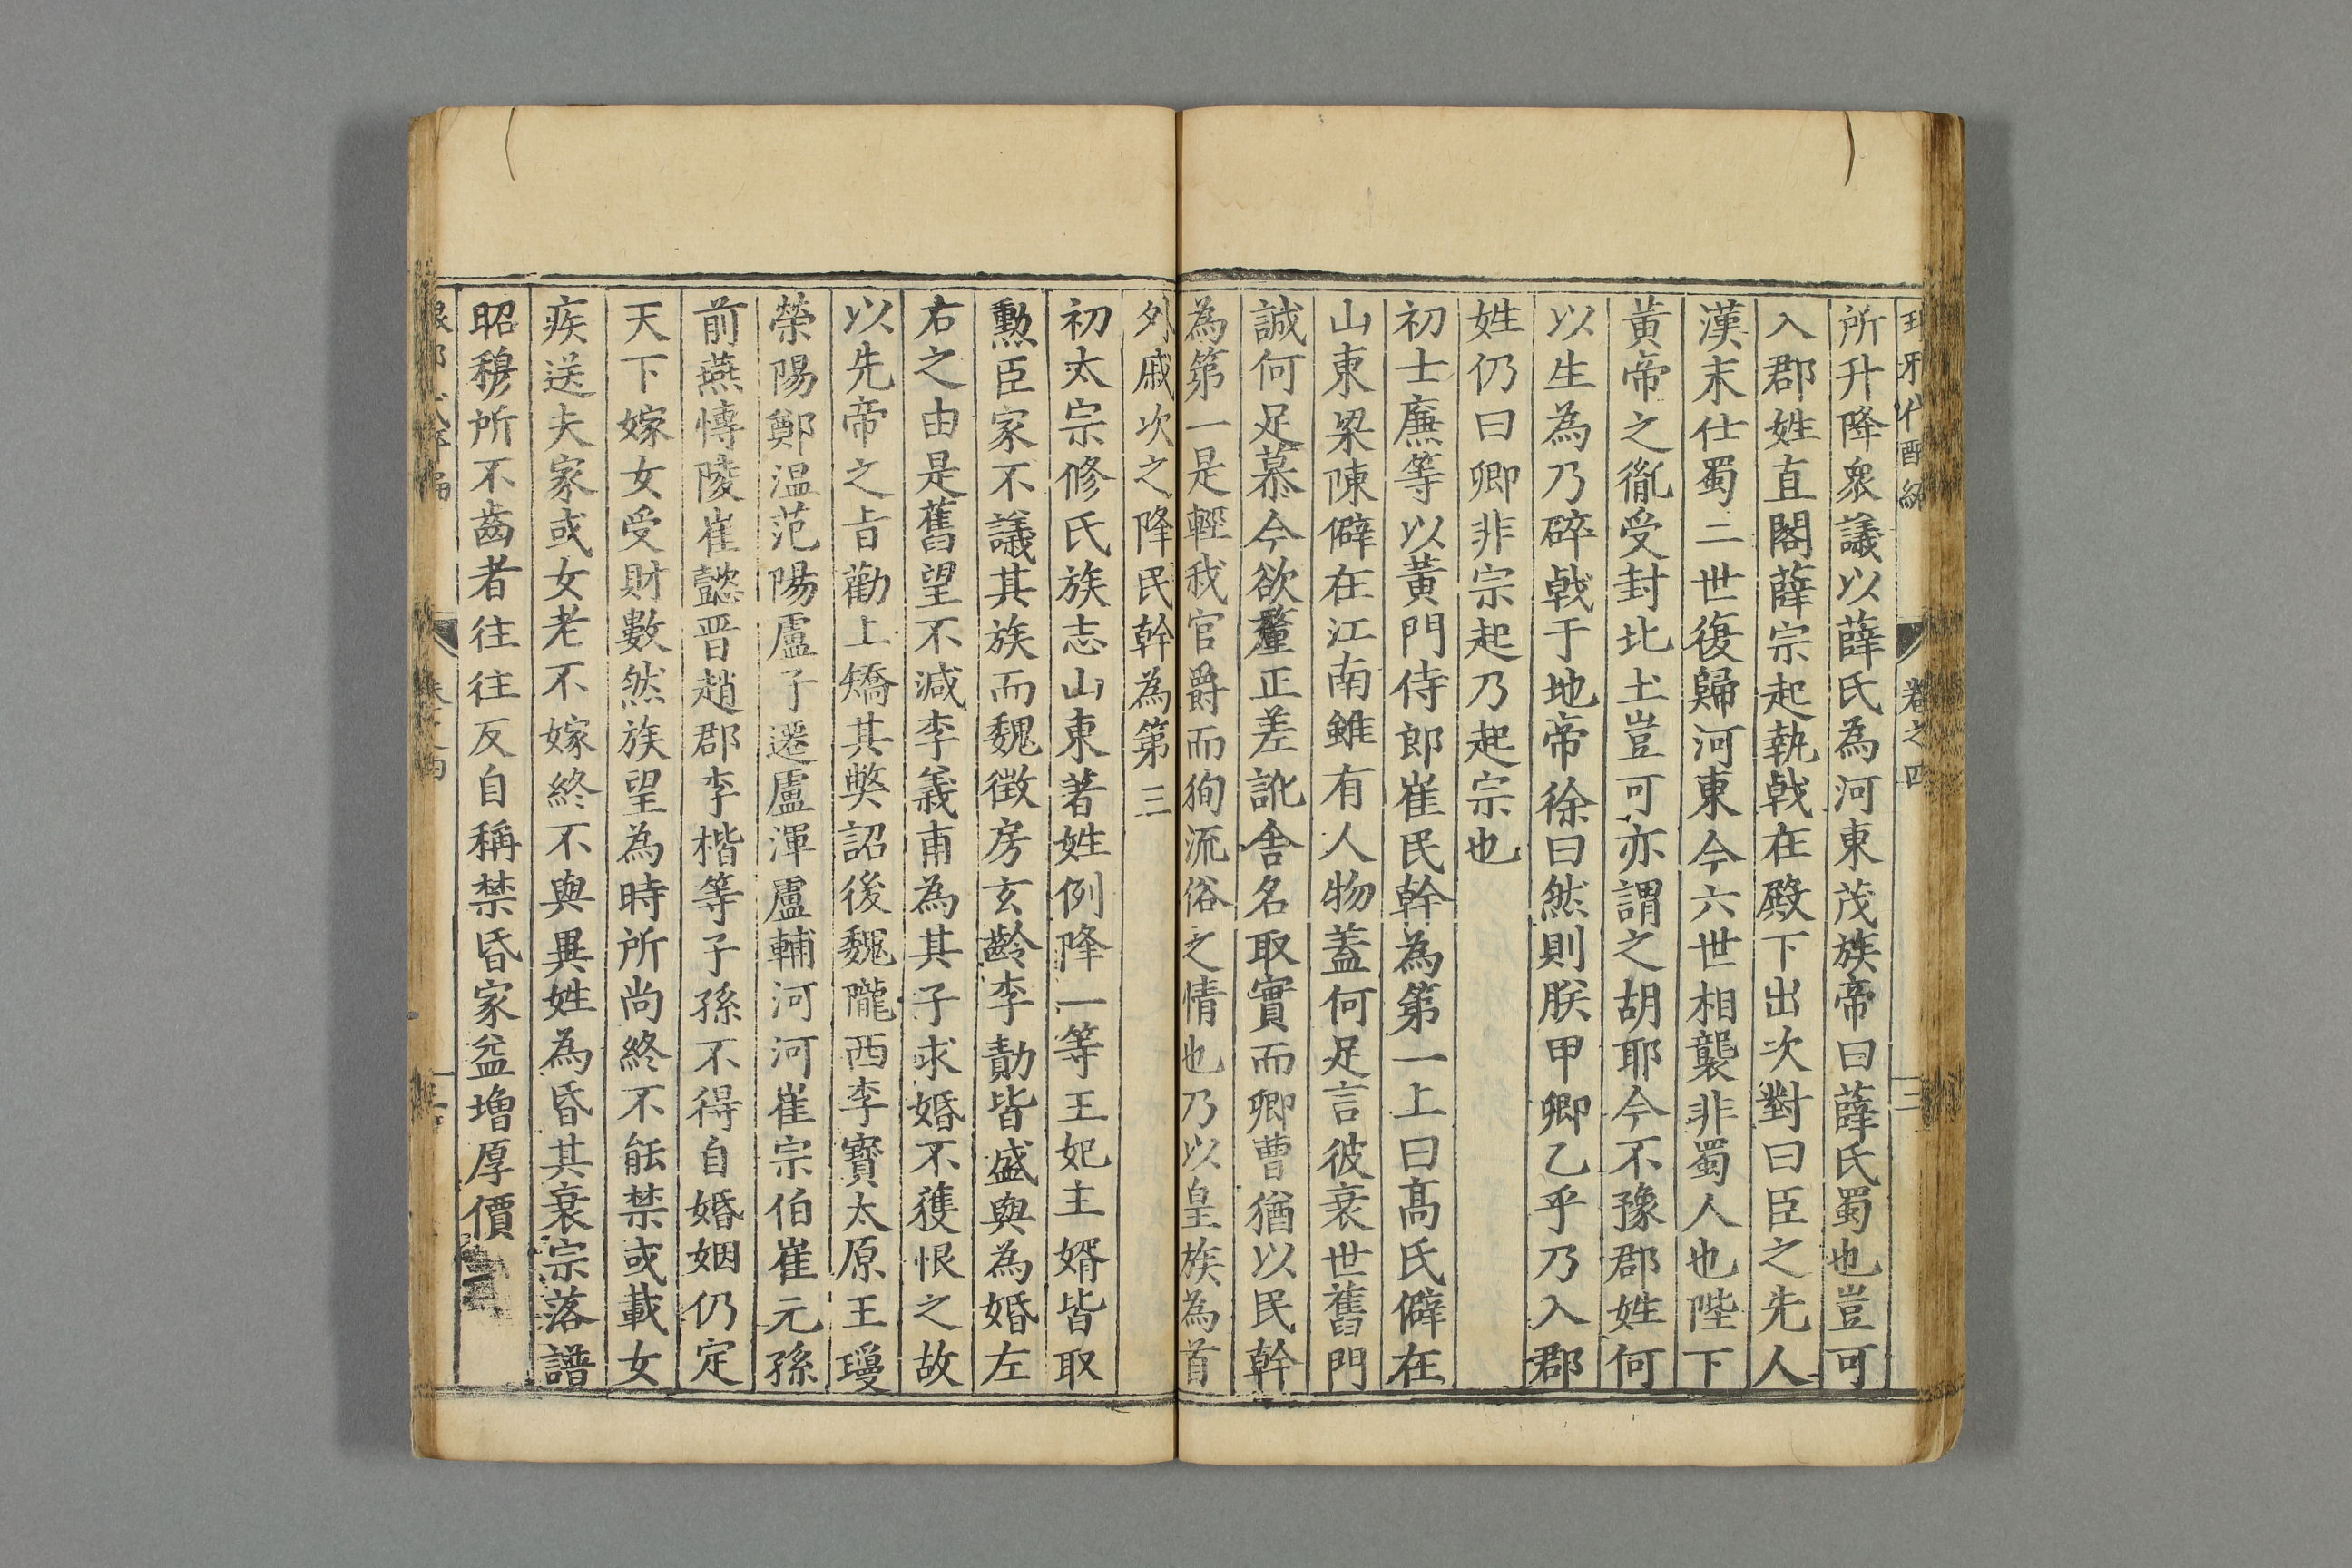 卷之四
所升降衆議以薛氏為河東茂族帝曰薛氏蜀也豈可
入郡姓直閣薛宗起執戟在殿下出次對曰臣之先人
漢末仕蜀二世復歸河東今六世相襲非蜀人也陛下
黃帝之胤受封北土豈可亦謂之胡耶今不豫郡姓何
以生為乃碎戟于地帝徐曰然則朕甲卿乙乎乃入郡
姓仍曰卿非宗起乃起宗也
初士廉等以黃門侍郎崔民幹為第一上曰高氏僻在
山東梁陳僻在江南雖有人物蓋何足言彼衰世舊門
誠何足慕今欲釐正差訛舍名取實而卿曹猶以民幹
為第一是輕我官爵而狥流俗之情也乃以皇族為首
外戚次之降民幹為第三
初太宗修氏族志山東著姓例降一等王妃主婿皆取
勲臣家不議其族而魏徵房玄齡李勣皆盛與為婚左
右之由是舊望不減李義甫為其子求婚不獲恨之故
以先帝之旨勸上矯其獘詔後魏隴西李寶太原王瓊
榮陽鄭温范陽盧子遷盧渾盧輔河河崔宗伯崔元孫
前燕慱陵崔懿晋趙郡李楷等子孫不得自婚姻仍定
天下嫁女受財數然族望為時所尚終不能禁或載女
疾送夫家或女老不嫁終不與異姓為昏其衰宗落譜
昭穆所不齒者往往反自稱禁昏家益增厚價